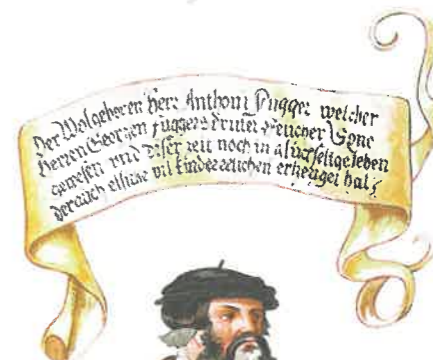 Der Wolgeboren Herr Anthoni Fugger welcher
Herren Georgen Fuggers driter Eelicher Sone
gewesen vnd diser zeit noch in glückselige leben
der auch vil kinder eelichen erzeuget hat